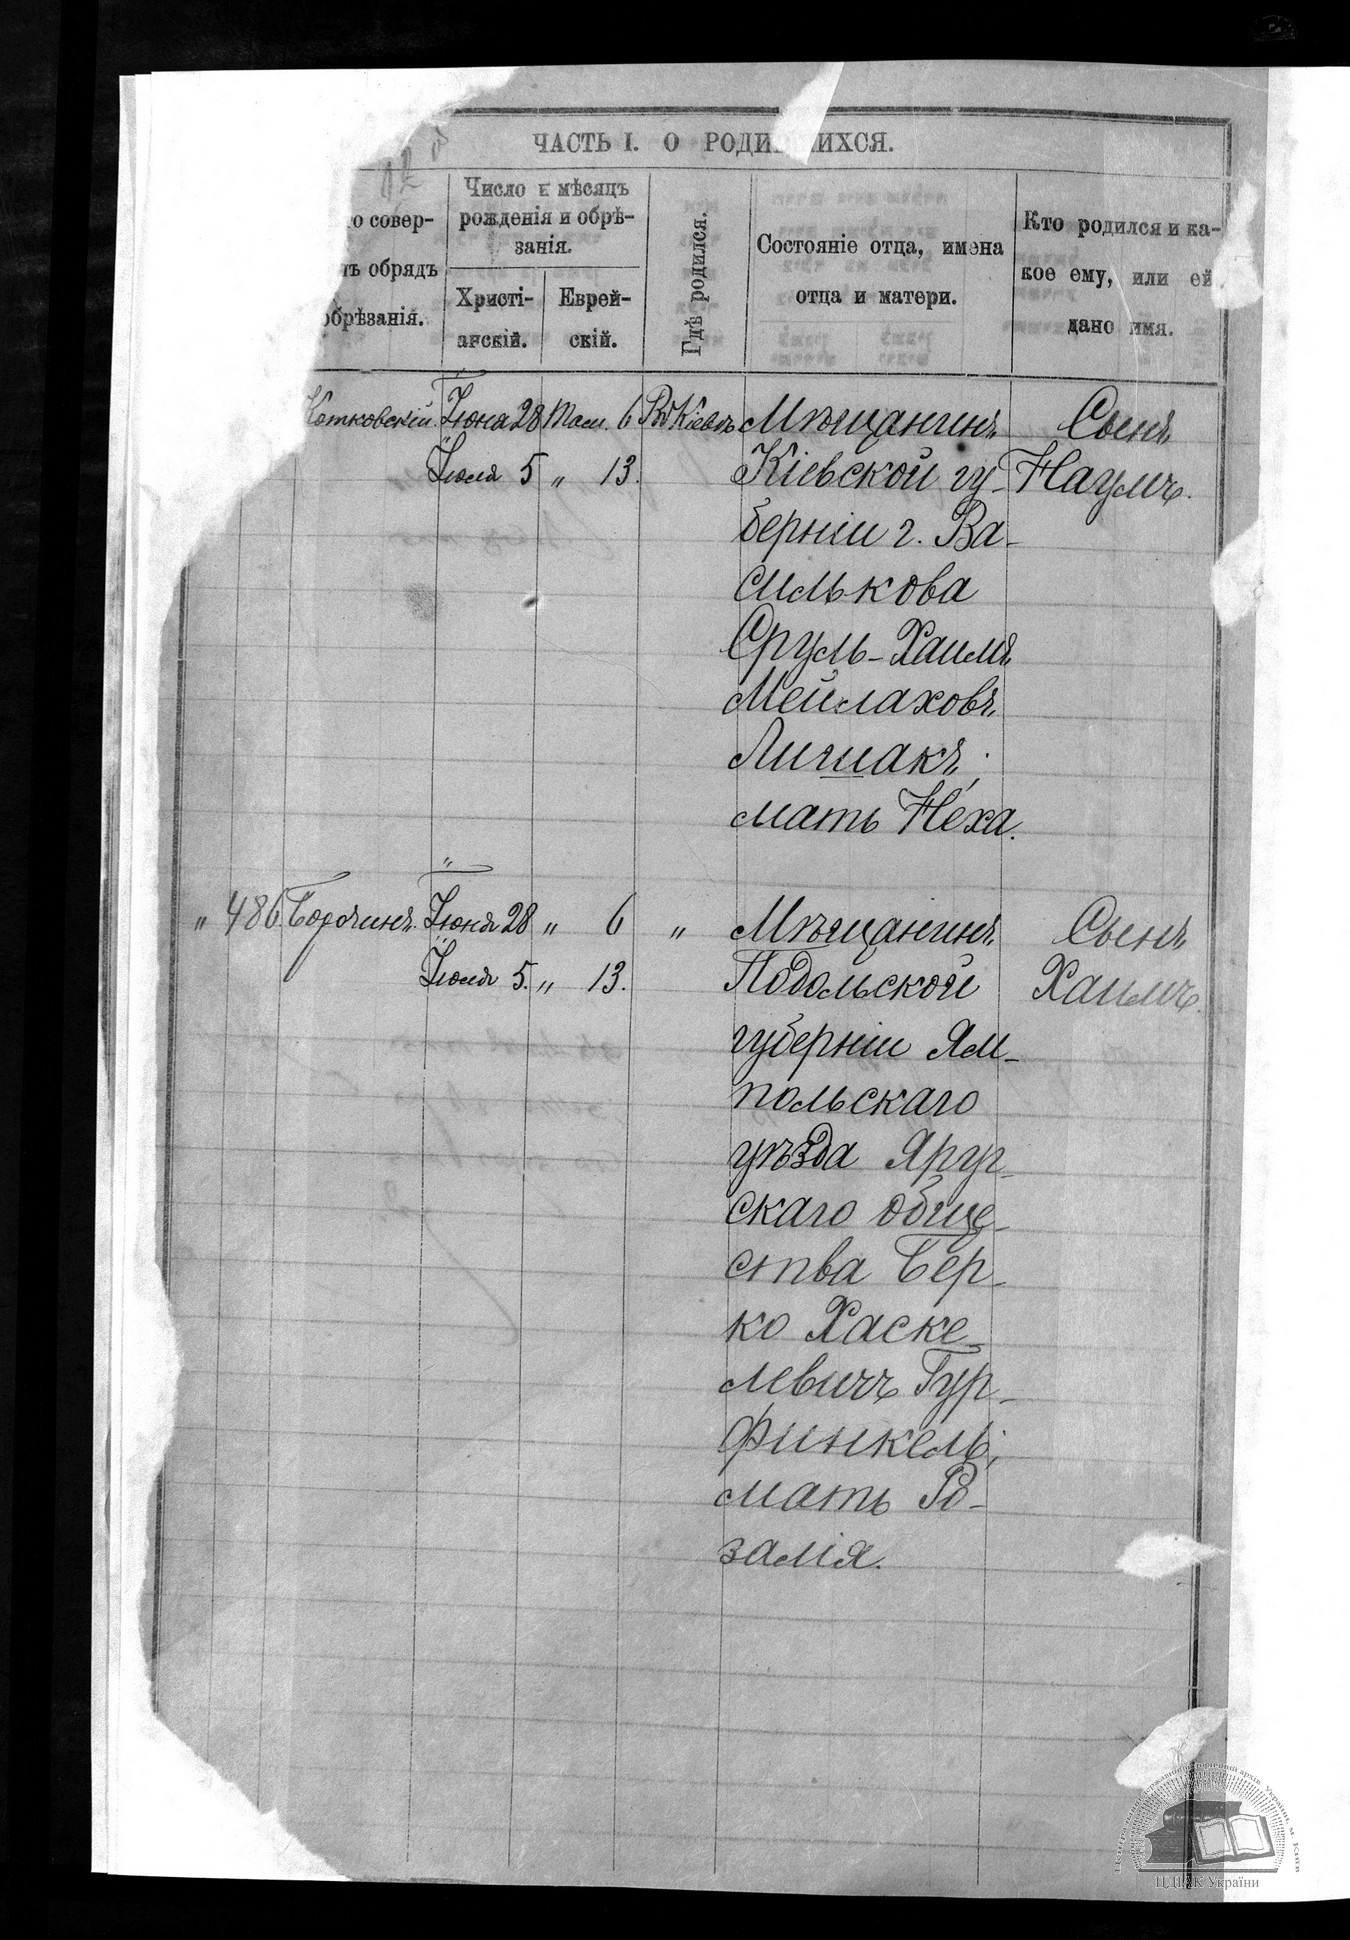 ЧАСТЬ I. О РОДИ ИХСЯ.
о совер-
ть обрядъ
обрѣзанія.
Число и мѣсяцъ
рожденія и обрѣ-
занія.
Христі-
анскій.
Еврей-
скій.
Гдѣ родился.
Состояніе отца, имена
отца и матери.
Кто родился и ка-
кое ему, или ей
дано имя.
Котковскій. Іюня 28 Там. 6 Въ Кіевѣ Мѣщанинъ Сынъ
Іюля 5 " 13. Кіевской гу- Наумъ.
берніи г. Ва-
силькова
Сруль-Хаимъ
Мейлаховъ
Лишакъ;
мать Неха.
" 486. Бородинъ. Іюня 28 " 6 " Мѣщанинъ Сынъ
Іюля 5. " 13. Подольской Хаимъ.
губерніи Ям-
польскаго
уѣзда Яруг-
скаго обще-
ства Бер-
ко Хаске-
левичъ Гур-
финкель;
мать Ро-
залія.
ЦДІАК України